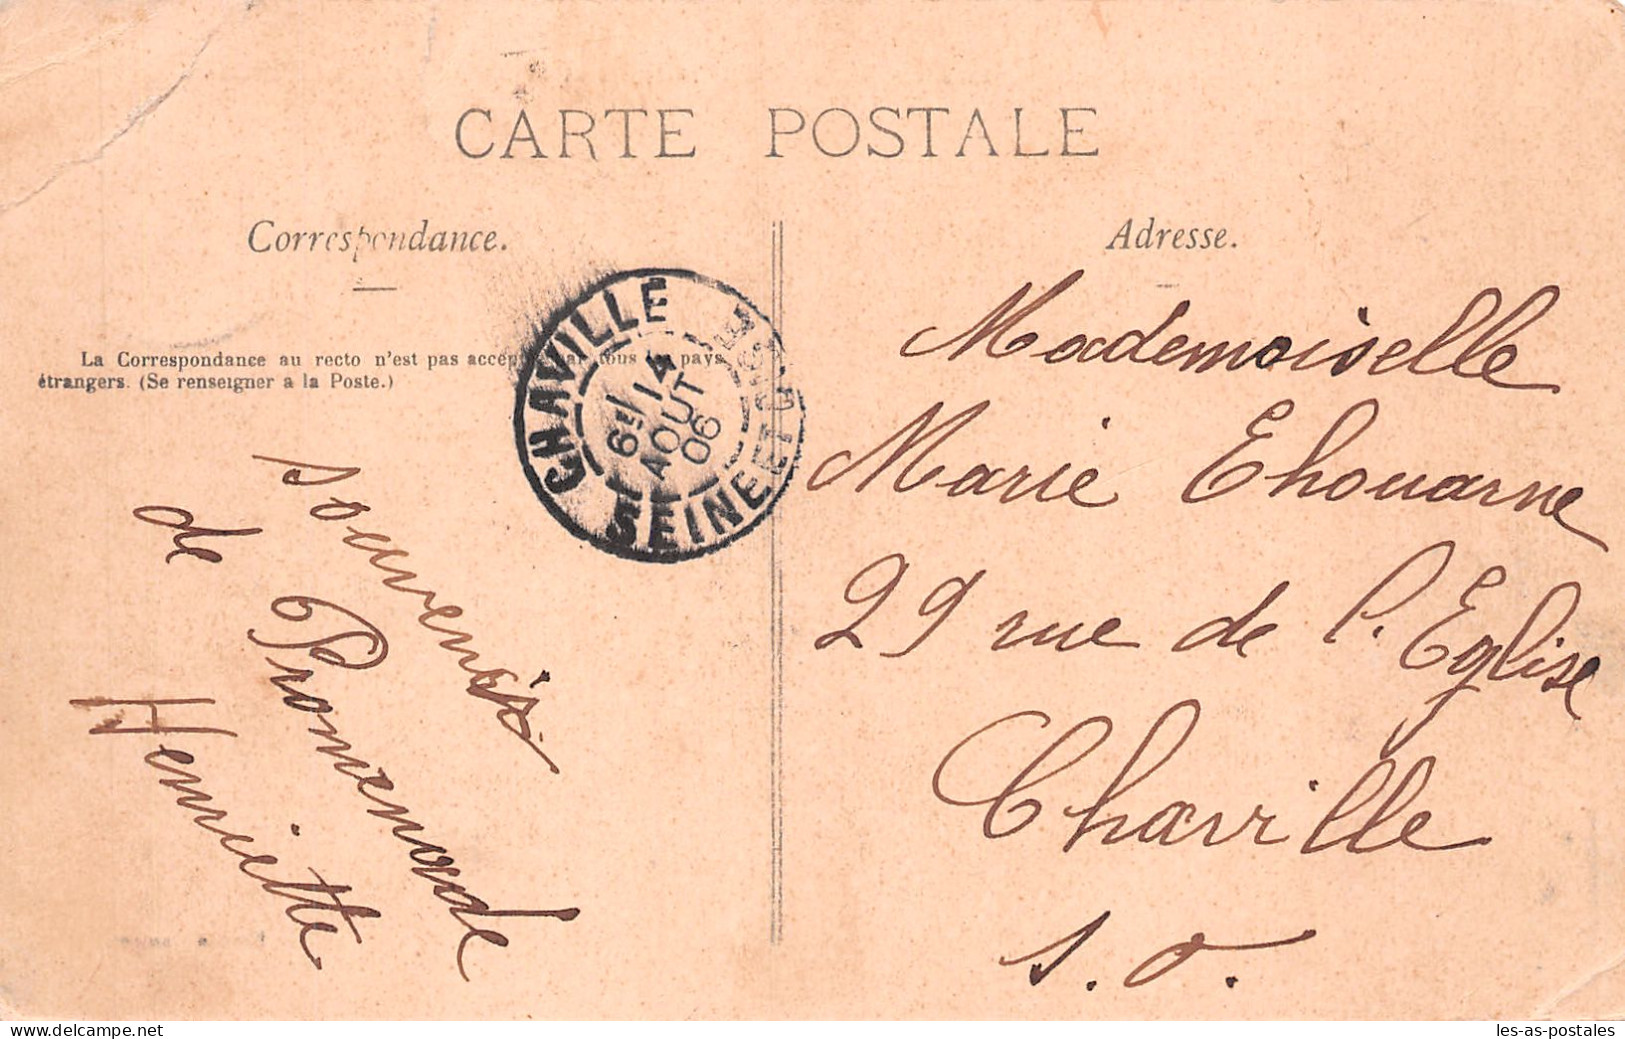 CARTE POSTALE
Correspondance.
Adresse.
La Correspondance au recto n'est pas accep tous pays
étrangers. (Se renseigner a la Poste.)
CHAVILLE
6E/14
AOUT
06
SEINE ET OISE
souvenir
de Promenade
Henriette
Mademoiselle
Marie Ehouarne
29 rue de l'Eglise
Chaville
S. O.
www.delcampe.net
les-as-postales